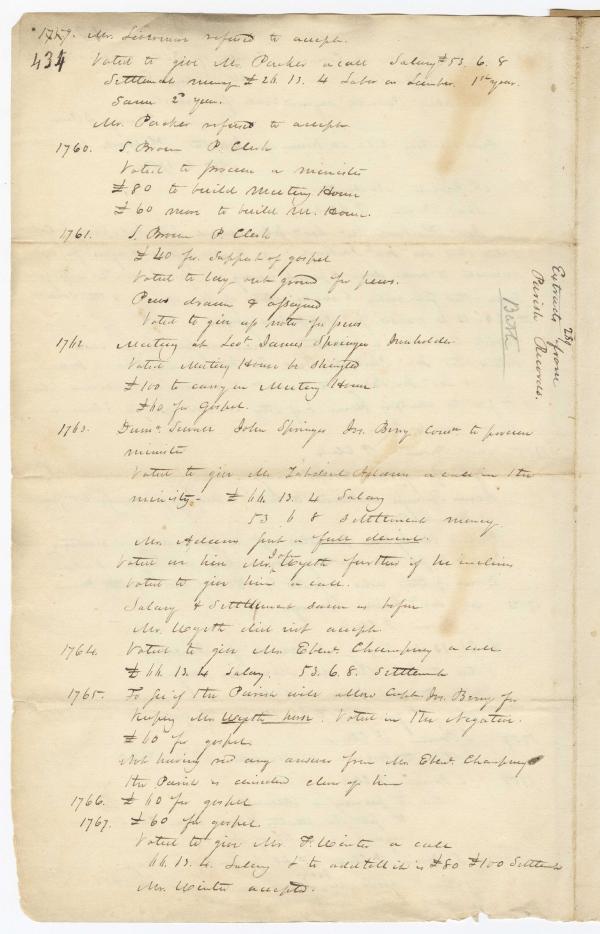 1759. Mr. refused to accept.
434 Voted to give Mr. Parker a call Salary £53. 6. 8
Settlement money £26. 13. 4 Labor or Lumber. 1st year.
Same 2d year.
Mr. Parker refused to accept
1760. S Brown P. Clerk
Voted to procure a minister
£80 to build Meeting House
£60 more to build M. House.
1761. S. Brown P Clerk
£40 for Support of gospel
Voted to lay out ground for pews.
Pews drawn &
Voted to give up note for pews
1762. Meeting at James Springer Innholder
Voted Meeting House be shingled
£100 to carry on Meeting House
£60 for Gospel.
1763. Dumr. Sewall John Springer Jos. Berry Comtt to procure
minister
Voted to give Mr. Zabdiel Adams a call in the
ministry - £66. 13. 4 Salary
53 6 8 Settlement money
Mr. Adams put a full denial.
Voted on hire Mr. Wyeth further if he inclines
Voted to give him a call.
Salary & Settlement same as before
Mr. Wyeth did not accept
1764. Voted to give Mr. Ebenr. Champney a call
£66. 13. 4 Salary. 53. 6. 8. Settlement
1765. To see if the Parish will allow Capt. Jos. Berry for
keeping Mr. Wyeth horse. Voted in the Negative.
£60 for gospel
Not having recd any answer from Mr. Ebenr. Champney
the Parish is considered clear of him
1766. £60 for gospel
1767. £60 for gospel
Voted to give Mr F. Winter a call
66. 13. 4. Salary & to add till it is £80 £100 Settlemt
Mr. Winter accepted.
Extracts from
Parish Records.
239
Bath